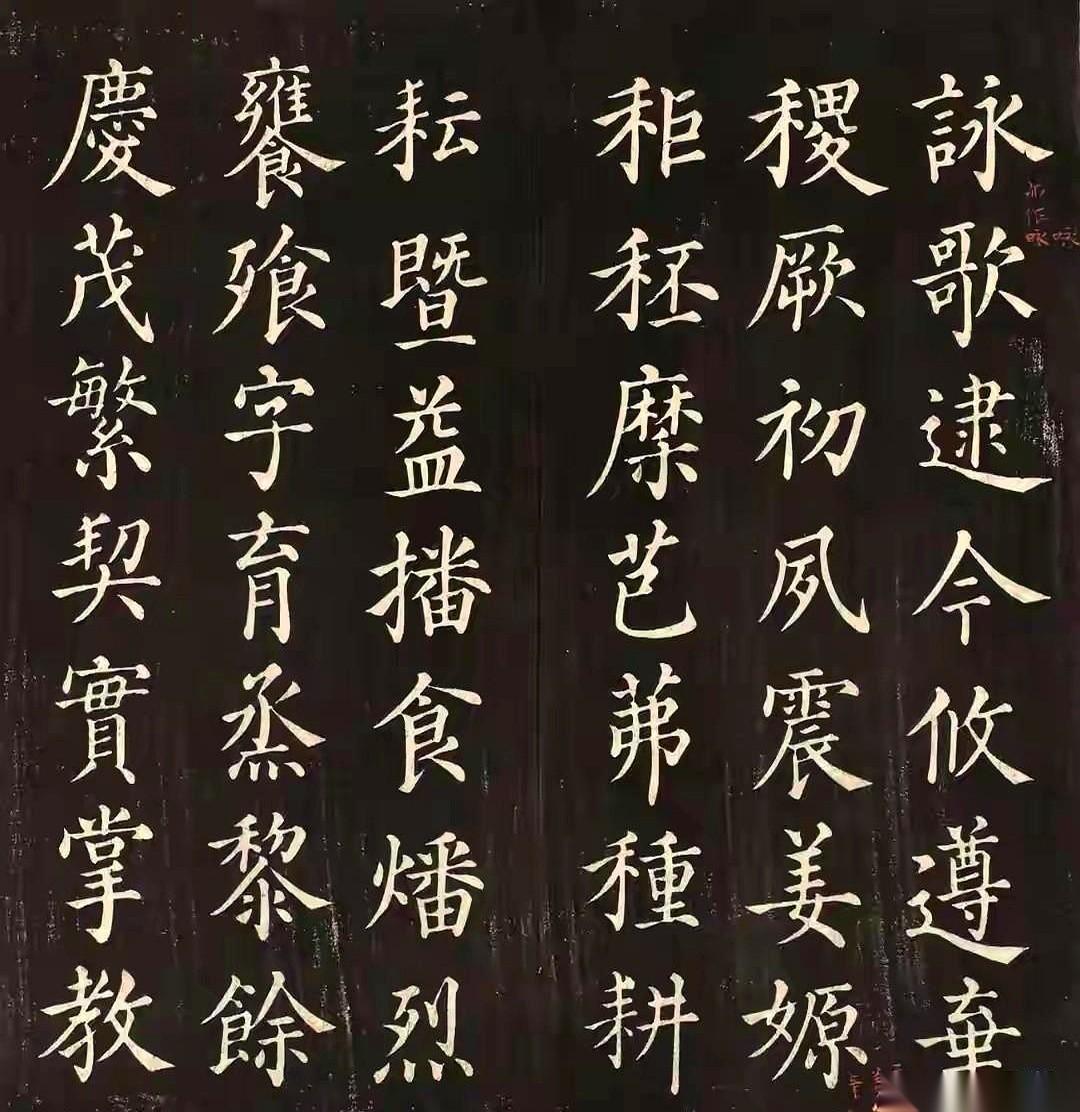 詠歌逮今攸遵棄
亦作咏
稷厥初夙震姜嫄
秬秠穈芑茀種耕
耘暨益播食燔烈
饔飱字育烝黎餘
慶茂繁契實掌教